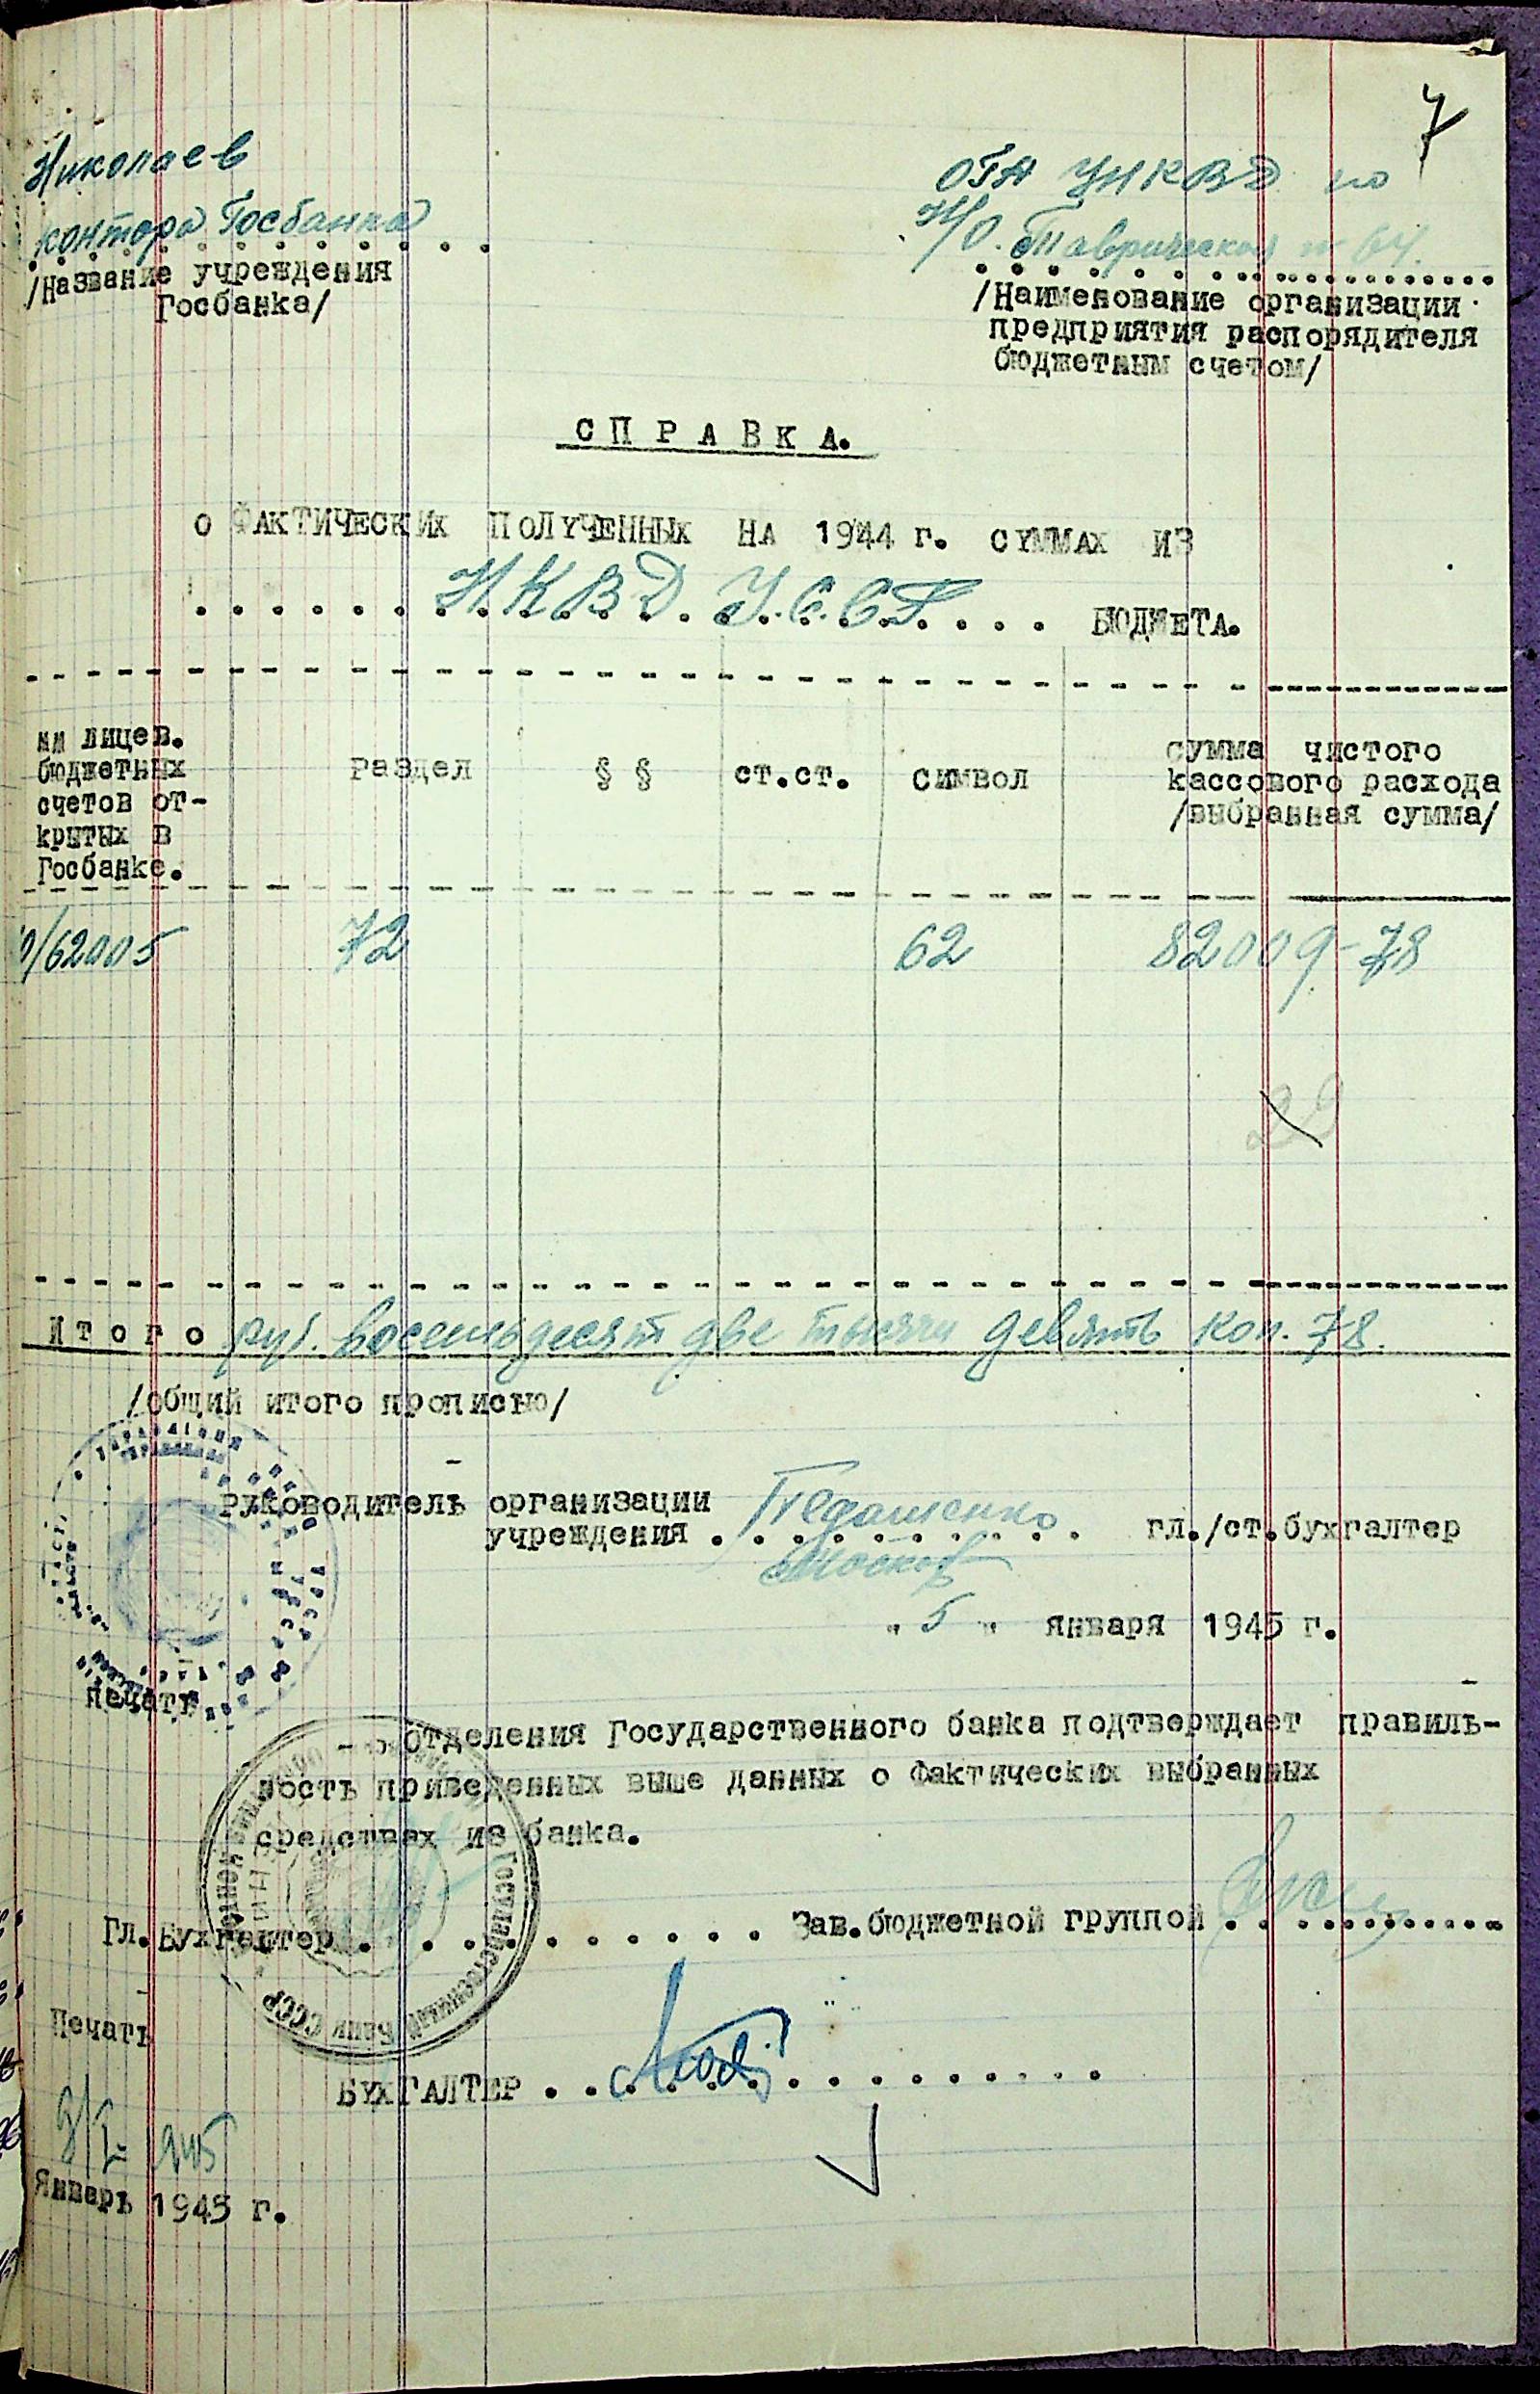 7
Николаев
контора Госбанка
/Название учреждения
Госбанка/
ОГА УНКВД по
Н/О. Таврическая № 64.
/Наименование организации
предприятия распорядителя
бюджетным счетом/
СПРАВКА.
О ФАКТИЧЕСКИХ ПОЛУЧЕННЫХ НА 1944 г. СУММАХ ИЗ
......Н.К.В.Д. У.С.С.Р.... БЮДЖЕТА.
№№ лицев.
бюджетных
счетов от-
крытых в
Госбанке.
Раздел
§ §
ст.ст.
символ
сумма чистого
кассового расхода
/выбранная сумма/
/62005 72 62 82009-78
Итого руб. восемьдесят две тысячи девять коп. 78.
/общий итого прописью/
Руководитель организации
учреждения . . . . . . . . . . гл./ст.бухгалтер
" 5 " января 1945 г.
Печать
отделения Государственного банка подтверждает правиль-
ность приведенных выше данных о фактических выбранных
средствах из банка.
Государственный Банк СССР
Гл.Бухгалтер. . . . . . . . . . Зав.бюджетной группой. . ...........
Печать
БУХГАЛТЕР . . . . . . . . . . . . . .
8/I-945
Январь 1945 г.